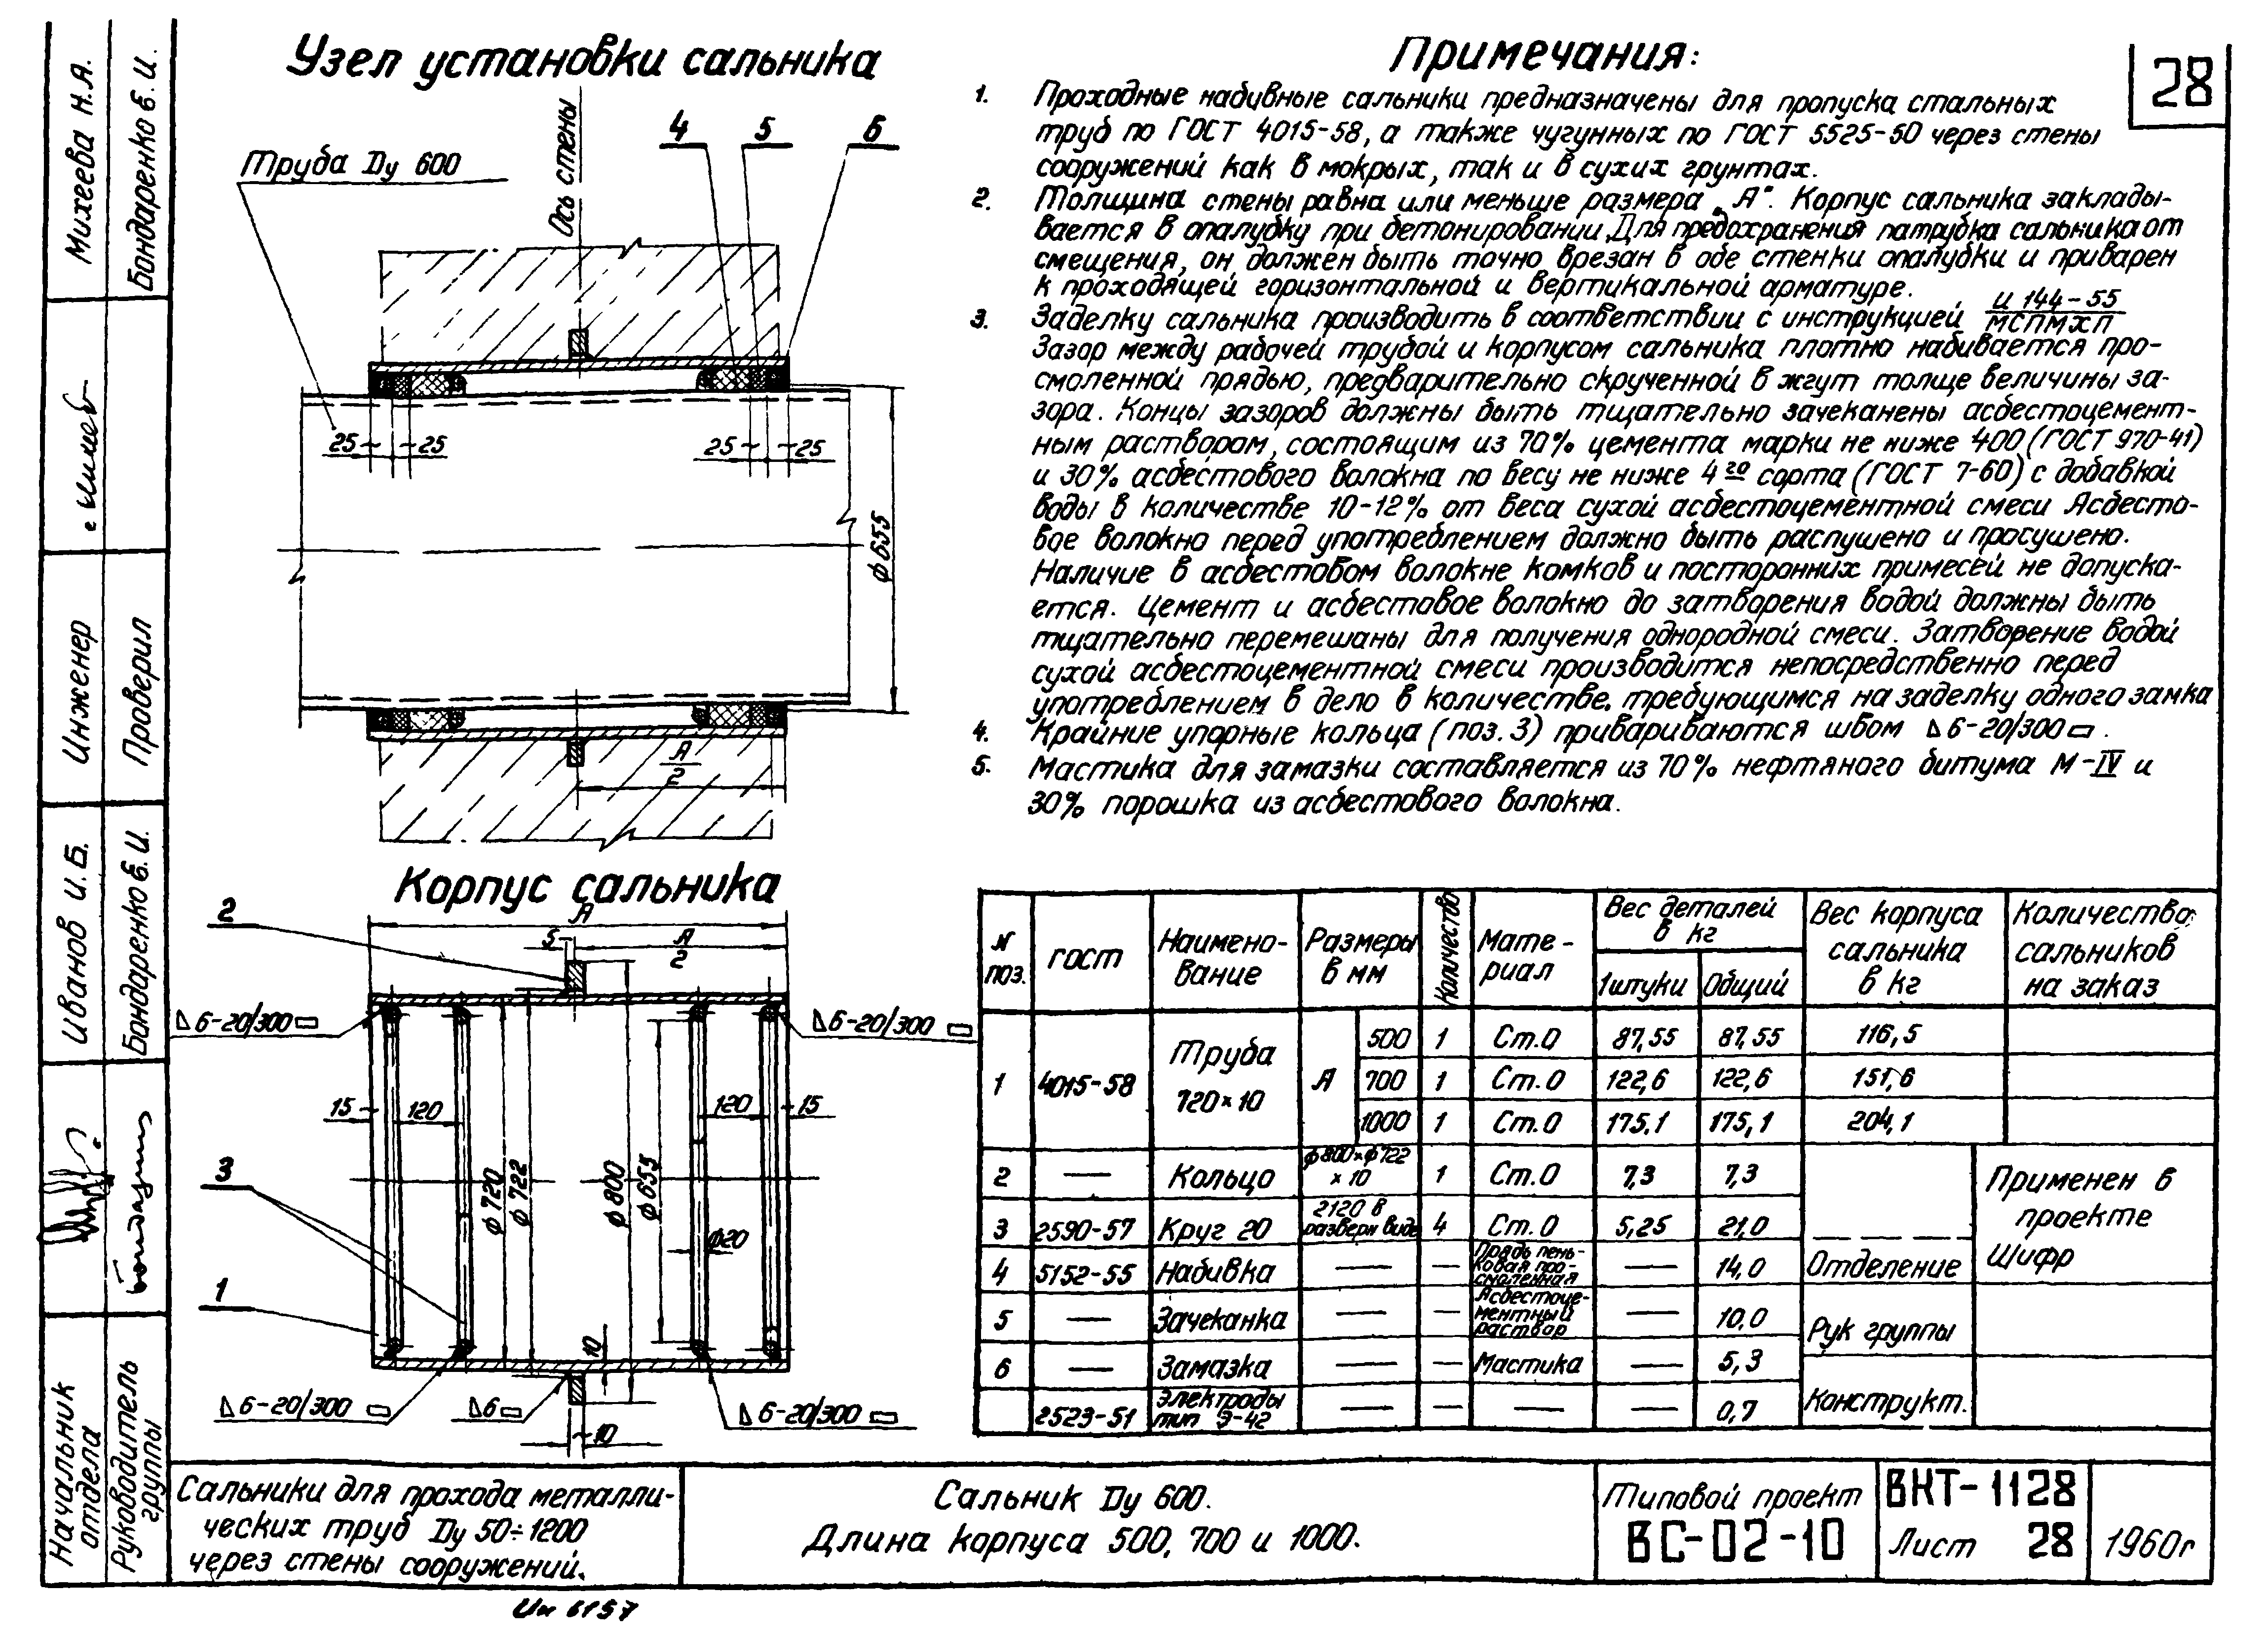 Узел установки сальника
Ось стены
4
5
6
Труба Dу 600
25
25
25
25
ф655
А
2
Корпус сальника
А
5
А
2
2
∆6-20/300
∆6-20/300
15
120
120
15
3
ф720
ф722
ф800
ф655
ф20
1
10
∆6-20/300
∆6
∆6-20/300
10
28
Примечания:
1. Проходные набивные сальники предназначены для пропуска стальных
труб по ГОСТ 4015-58, а также чугунных по ГОСТ 5525-50 через стены
сооружений как в мокрых, так и в сухих грунтах.
2. Толщина стены равна или меньше размера „А". Корпус сальника заклады-
вается в опалубку при бетонировании. Для предохранения патрубка сальника от
смещения, он должен быть точно врезан в обе стенки опалубки и приварен
к проходящей горизонтальной и вертикальной арматуре.
3. Заделку сальника производить в соответствии с инструкцией И 144-55
МСПМХП
Зазор между рабочей трубой и корпусом сальника плотно набивается про-
смоленной прядью, предварительно скрученной в жгут толще величины за-
зора. Концы зазоров должны быть тщательно зачеканены асбестоцемент-
ным раствором, состоящим из 70% цемента марки не ниже 400 (ГОСТ 970-41)
и 30% асбестового волокна по весу не ниже 4го сорта (ГОСТ 7-60) с добавкой
воды в количестве 10-12% от веса сухой асбестоцементной смеси Асбесто-
вое волокно перед употреблением должно быть распушено и просушено.
Наличие в асбестовом волокне комков и посторонних примесей не допуска-
ется. Цемент и асбестовое волокно до затворения водой должны быть
тщательно перемешаны для получения однородной смеси. Затворение водой
сухой асбестоцементной смеси производится непосредственно перед
употреблением в дело в количестве, требующимся на заделку одного замка
4. Крайние упорные кольца (поз. 3) привариваются швом ∆6-20/300▭.
5. Мастика для замазки составляется из 70% нефтяного битума М-IV и
30% порошка из асбестового волокна.
N поз. ГОСТ Наимено-вание Размеры в мм Количество Мате-риал Вес деталей в кг 1 штуки Общий Вес корпуса сальника в кг Количество сальников на заказ
1 4015-58 Труба 720×10 А 500 1 Ст.0 87,55 87,55 116,5
700 1 Ст.0 122,6 122,6 151,6
1000 1 Ст.0 175,1 175,1 204,1
2 — Кольцо ф800×ф722 ×10 1 Ст.0 7,3 7,3
3 2590-57 Круг 20 2120 в разверн виде 4 Ст.0 5,25 21,0
4 5152-55 Набивка — — Прядь пень-ковая про-смоленная — 14,0
5 — Зачеканка — — Асбестоце-ментный раствор — 10,0
6 — Замазка — — Мастика — 5,3
2523-51 Электроды тип Э-42 — — — — 0,7
Применен в
проекте
Шифр
Отделение
Рук группы
Конструкт.
Сальники для прохода металли-
ческих труб Dу 50÷1200
через стены сооружений.
Сальник Dу 600.
Длина корпуса 500, 700 и 1000.
Типовой проект
ВС-02-10
ВКТ-1128
Лист 28
1960г
Михеева Н.А.
Бондаренко Е.И.
Инженер
Проверил
Иванов И.Б.
Бондаренко Е.И.
Начальник
отдела
Руководитель
группы
Ин 6157